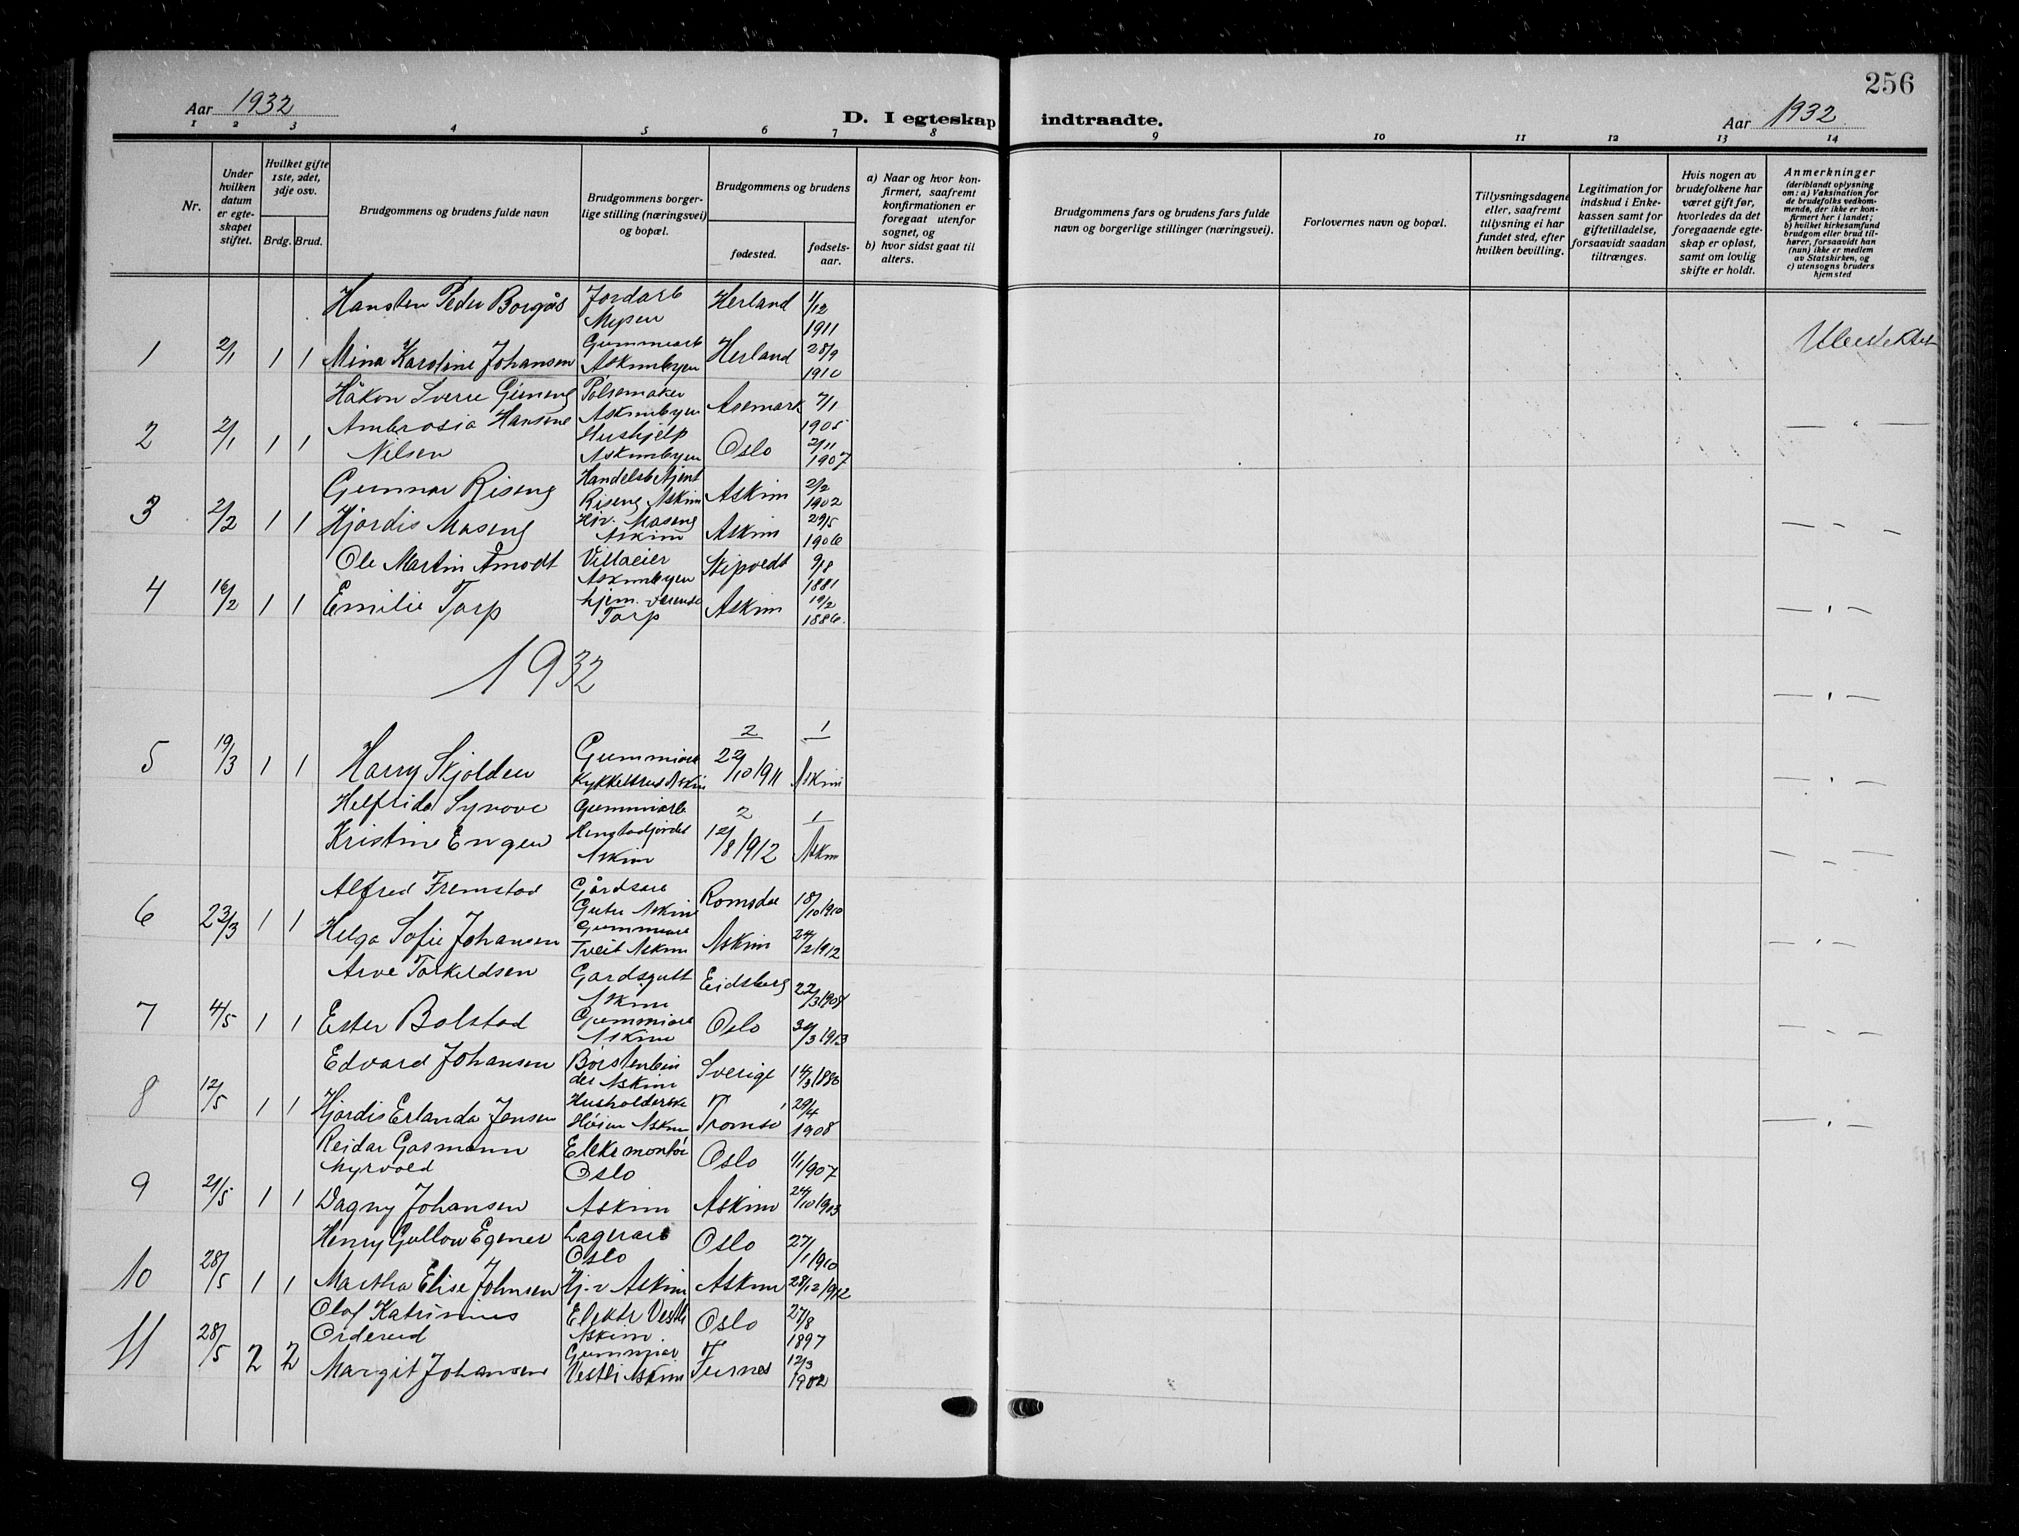 256
Aar 1932
D. I egteskap indtraadte.
Aar 1932
1 2 3 4 5 6 7 8 9 10 11 12 13 14
Nr.
Under hvilken datum er egte- skapet stiftet.
Hvilket gifte 1ste, 2det, 3dje osv.
Brdg. Brud.
Brudgommens og brudens fulde navn
Brudgommens borger- lige stilling (næringsvei) og bopæl.
Brudgommens og brudens
fødested.
fødsels- aar.
a) Naar og hvor kon- firmert, saafremt konfirmationen er foregaat utenfor sognet, og
b) hvor sidst gaat til alters.
Brudgommens fars og brudens fars fulde navn og borgerlige stillinger (næringsvei).
Forlovernes navn og bopæl.
Tillysningsdagene eller, saafremt tillysning ei har fundet sted, efter hvilken bevilling.
Legitimation for indskud i Enke- kassen samt for giftetilladelse, forsaavidt saadan tiltrænges.
Hvis nogen av brudefolkene har været gift før, hvorledes da det foregaaende egte- skap er opløst, samt om lovlig skifte er holdt.
Anmerkninger
(deriblandt oplysning om: a) Vaksination for de brudefolks vedkom- mende, der ikke er kon- firmert her i landet; b) hvilket kirkesamfund brudgom eller brud til- hører, forsaavidt han (hun) ikke er medlem av Statskirken, og c) utensogns bruders hjemsted
Hansten Peder Borgås Jordarb Mysen Herland 1/12 1911
1 2/1 1 1 Mina Karoline Johansen Gummiarb Askimbyen Herland 28/9 1910
Håkon Sverre Gimeng Pølsemaker Askimbyen Aremark 7/1 1905
2 2/1 1 1 Ambrosia Hansine Nilsen Hushjelp Askimbyen Oslo 2/11 1907
Gunnar Riseng Handelsbetjent Riseng Askim Askim 2/2 1902
3 2/2 1 1 Hjørdis Maseng Hjv. Maseng Askim Askim 29/5 1906
Ole Martin Åmodt Villaeier Askimbyen Skiptvedt 9/8 1881
4 16/2 1 1 Emilie Torp hjem. værende Torp Askim 19/2 1886.
1932
5 19/3 1 1 Harry Skjolden Gummiarb Kykkelsrud Askim 2 22/10 1911 1 Askim
Helfrida Synove Kristine Engen Gummiarb Askim 2 12/8 1912 1 Askim
Alfred Fremstad Gårdsarb Askim Romsdal 18/10 1910
6 23/3 1 1 Helga Sofie Johansen Gummiarb Tveit Askim Askim 24/2 1912
Arve Torkeldsen Gardsgutt Askim Eidsberg 22/3 1908
7 4/5 1 1 Ester Bolstad Gummiarb Askim Oslo 30/3 1913
Edvard Johansen Børstenbin der Askim Sverige 14/3 1886
8 12/5 1 1 Hjørdis Erlanda Jensen Husholderske Høien Askim Tromsø 29/4 1908
Reidar Gasmann Myrvold Elek montør Oslo Oslo 1/1 1907
9 21/5 1 1 Dagny Johansen Askim Askim 24/10 1903
Henry Gullow Egener Lagerarb Oslo Oslo 27/1 1910
10 28/5 1 1 Martha Elise Johnsen Hj. v Askim Askim 28/12 1912
Olaf Katrinius Ordereid Elektr Vestli Askim. Oslo 27/8 1897
11 28/5 2 2 Margit Johansen Gummiar Vestli Askim Furnes 12/3 1902